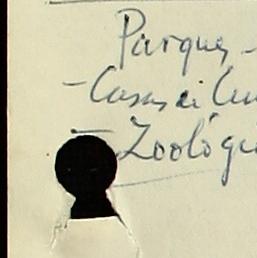 Parques -
- Casas di Cu
- Zoológi